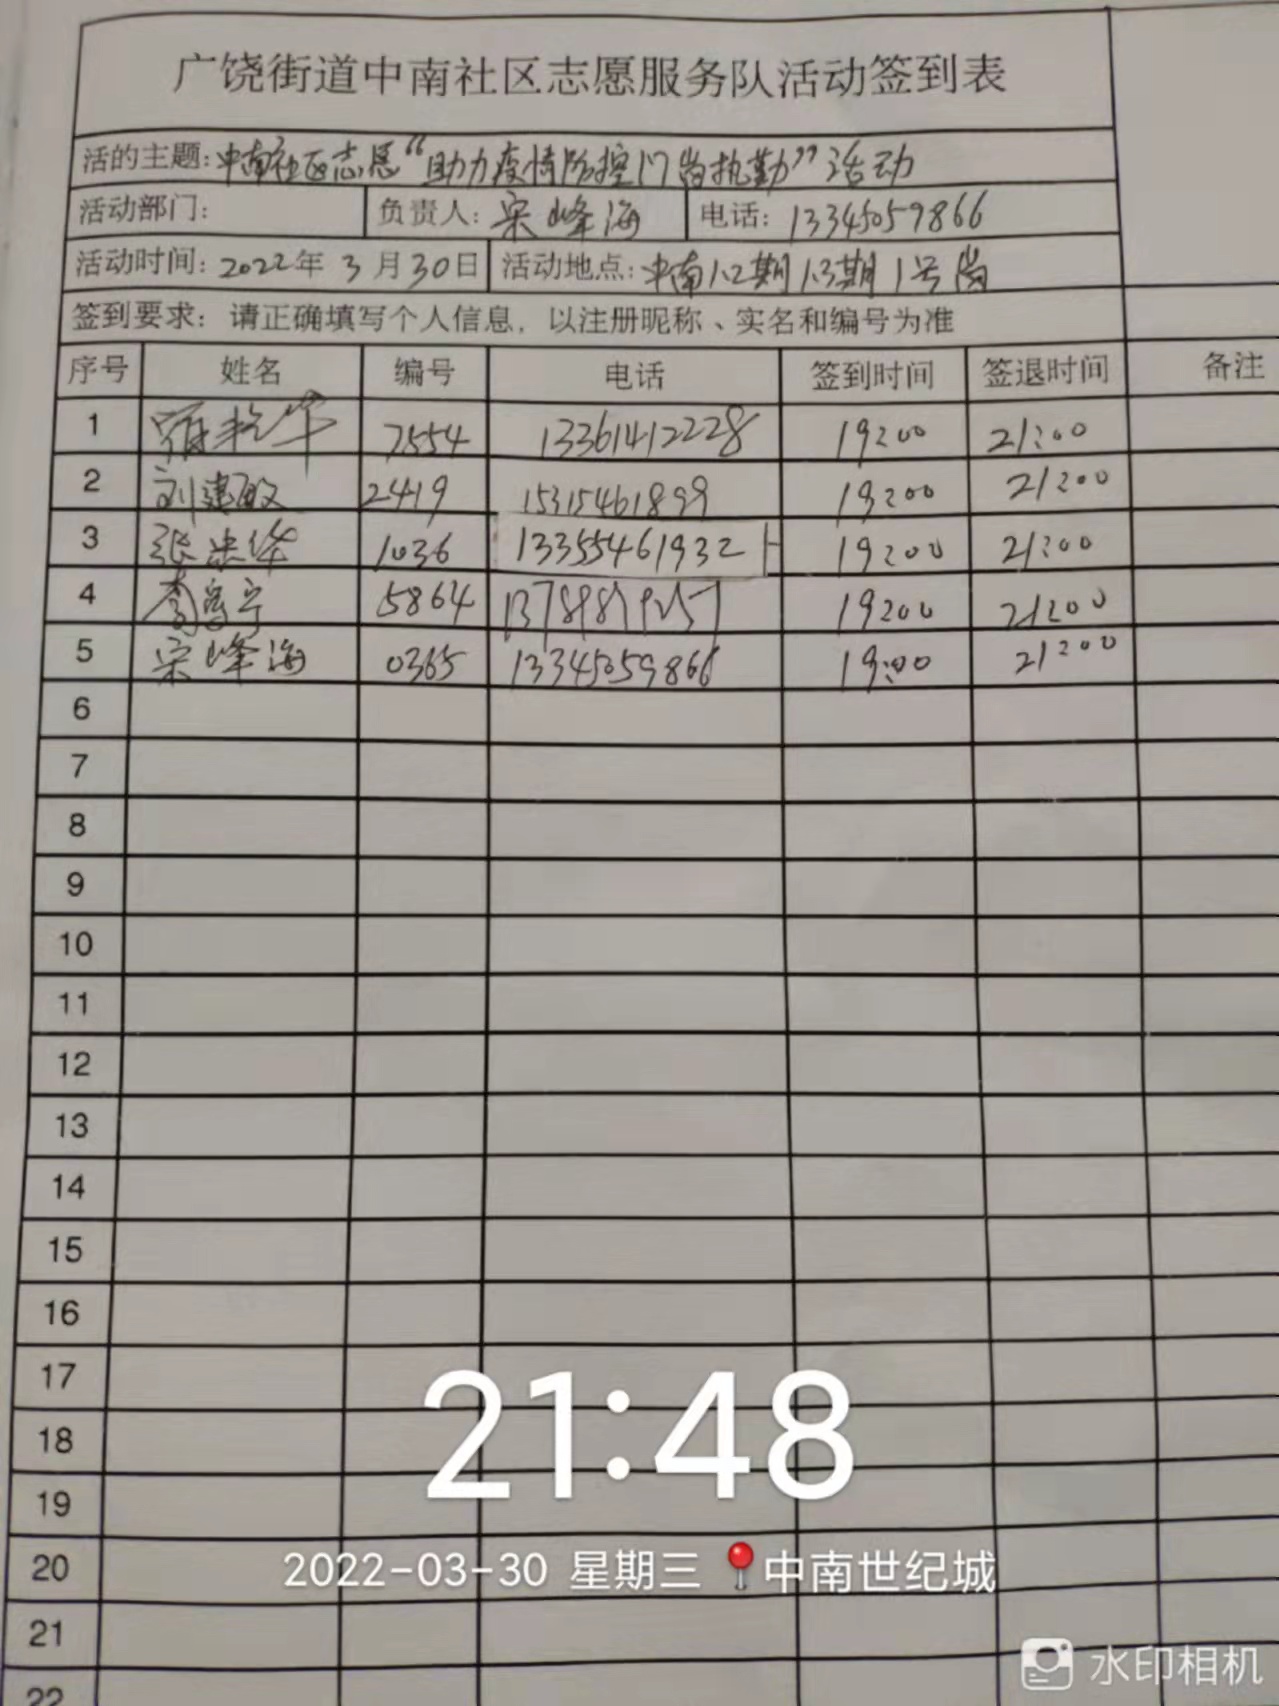 广饶街道中南社区志愿服务队活动签到表
活的主题：中南社区志愿“助力疫情防控门岗执勤”活动
活动部门： 负责人：宋峰海 电话：13345059866
活动时间：2022年3月30日 活动地点：中南1.2期 1.3期 1号岗
签到要求：请正确填写个人信息，以注册昵称、实名和编号为准
序号 姓名 编号 电话 签到时间 签退时间 备注
1 7554 13361412228 19:00 21:00
2 刘建敏 2419 15315461899 19:00 21:00
3 1036 13355461932 19:00 21:00
4 5864 19:00 21:00
5 宋峰海 0365 13345059866 19:00 21:00
6
7
8
9
10
11
12
13
14
15
16
17
18
19
20
21
22
21:48
2022-03-30 星期三 中南世纪城
水印相机